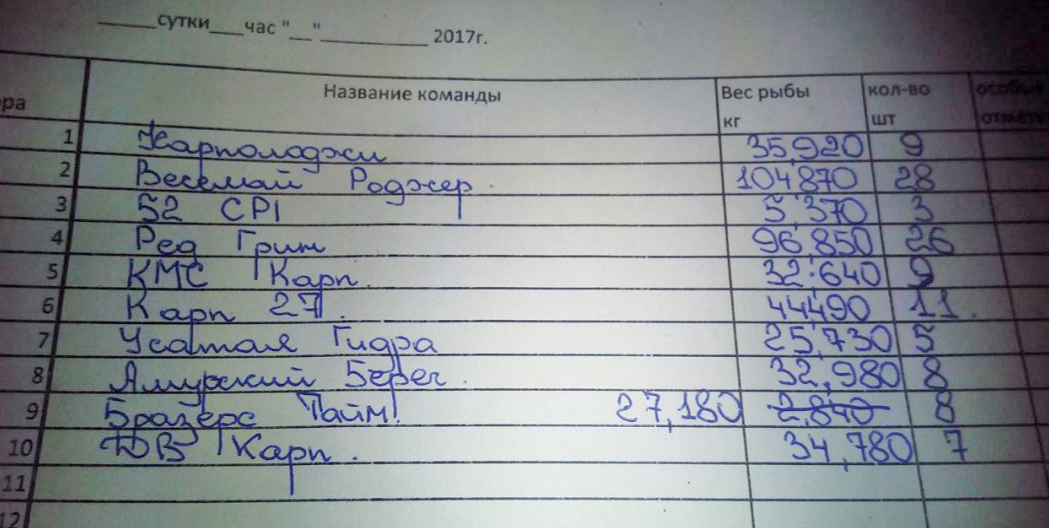 _____сутки___час "__"__________ 2017г.
ора Название команды Вес рыбы кг кол-во шт особые отметк
1 Карпологжи 35,920 9
2 Веселый Роджер. 104,870 28
3 52 СРІ 5,370 3
4 Ред Грин 96,850 26
5 КМС Карп. 32,640 9
6 Карп 27. 44,490 11.
7 Усатая Гидра 25,730 5
8 Амурский Берег. 32,980 8
9 Бразерс Тайм! 27,180 2,840 8
10 ДВ Карп. 34,780 7
11
12